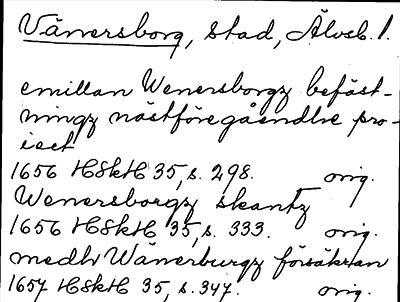 Vänersborg, stad, Älvsb. l.
emillan Wenersborgz befäst-
ningz nästföregåendhe pro-
iect
1656 HSkH 35, s. 298. orig.
Wenersborgz skantz
1656 HSkH 35, s. 333. orig.
medh Wänerburgz försäkran
1657 HSkH 35, s. 347. orig.